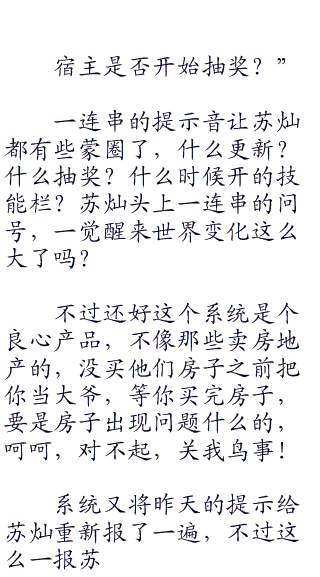 宿主是否开始抽奖？”
一连串的提示音让苏灿
都有些蒙圈了，什么更新？
什么抽奖？什么时候开的技
能栏？苏灿头上一连串的问
号，一觉醒来世界变化这么
大了吗？
不过还好这个系统是个
良心产品，不像那些卖房地
产的，没买他们房子之前把
你当大爷，等你买完房子，
要是房子出现问题什么的，
呵呵，对不起，关我鸟事！
系统又将昨天的提示给
苏灿重新报了一遍，不过这
么一报苏